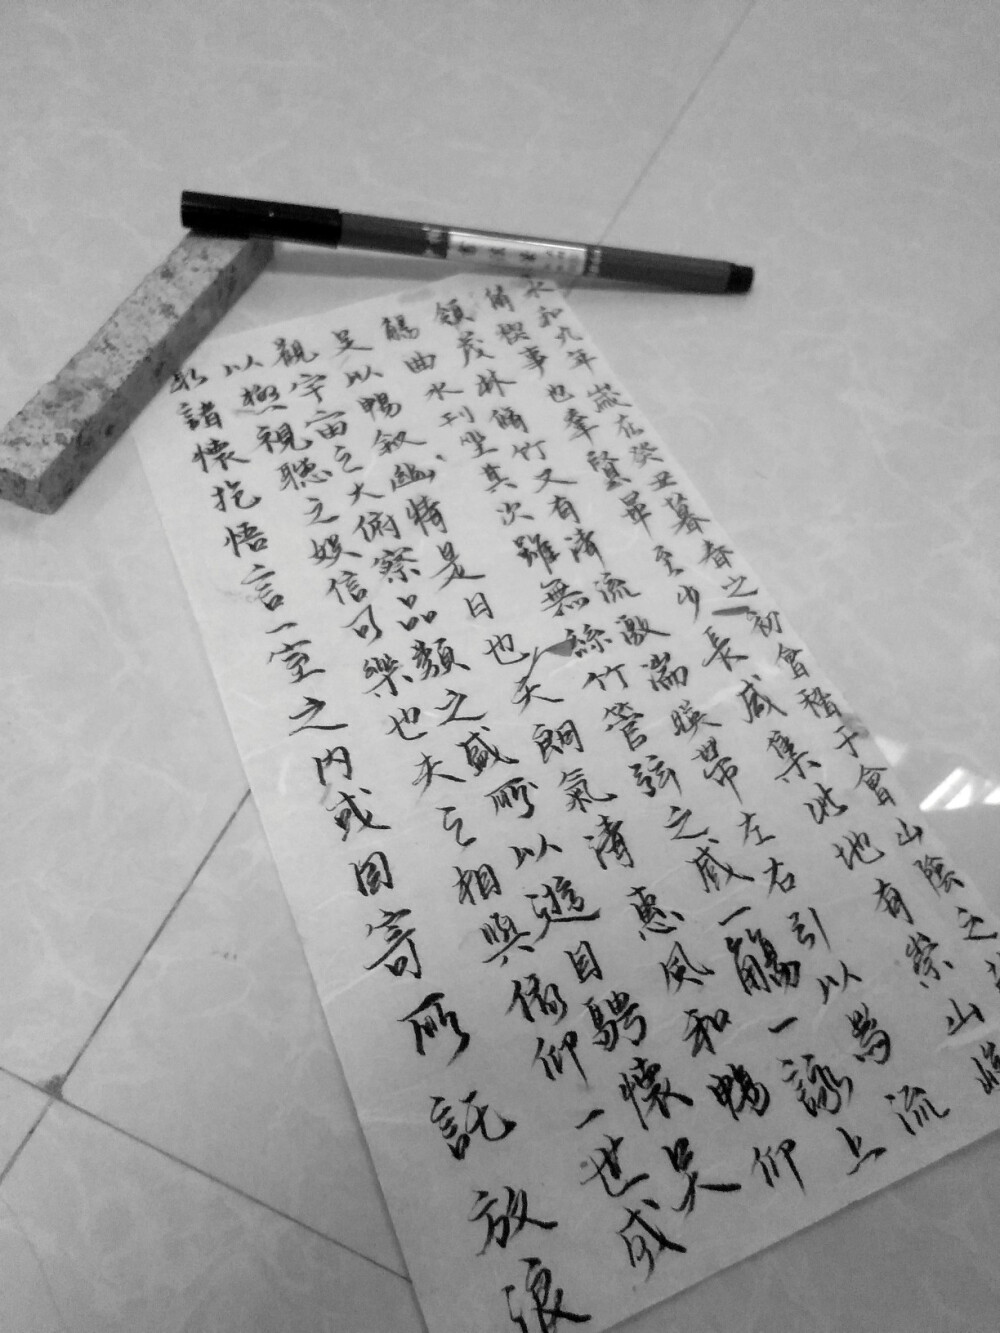 永和九年歲在癸丑暮春之初會稽于會山陰之
脩禊事也羣賢畢至少長咸集此地有崇山峻
領茂林脩竹又有清流激湍暎帶左右引以為流
觴曲水列坐其次雖無絲竹管弦之盛一觴一詠亦
足以暢叙幽情是日也天朗氣清惠風和暢仰
觀宇宙之大俯察品類之盛所以遊目騁懷足
以極視聽之娛信可樂也夫之相與俯仰一世或
取諸懷抱悟言一室之内或因寄所託放浪